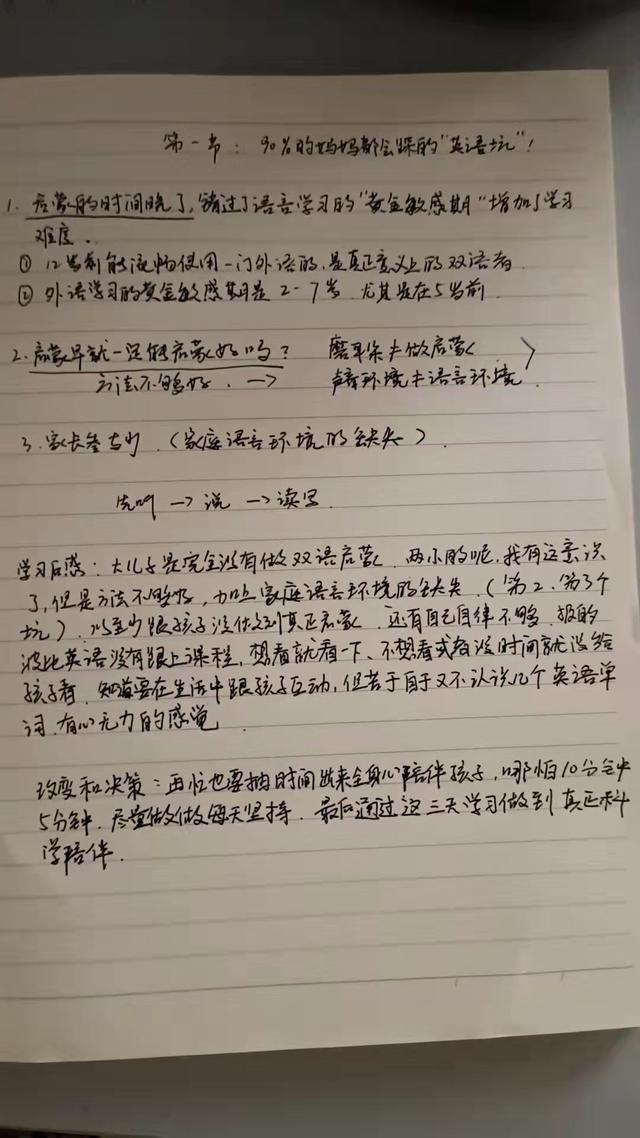 第一节：90%的妈妈都会踩的"英语坑"！
1. 启蒙的时间晚了，错过了语言学习的"黄金敏感期"增加了学习
难度。
① 12岁前能流畅使用一门外语的，是真正意义上的双语者
② 外语学习的黄金敏感期是2-7岁 尤其是在5岁前
2. 启蒙早就一定能启蒙好吗？ 磨耳朵≠做启蒙
方法不够好. → 声音环境≠语言环境
3. 家长参与少.（家庭语言环境的缺失）.
先听 → 说 → 读写
学习后感：大儿子是完全没有做双语启蒙 两小的呢，我有这意识
了，但是方法不够好，加上家庭语言环境的缺失（第2、第3个
坑），以至少跟孩子没做到真正启蒙 还有自己自律不够 报的
波比英语没有跟上课程，想看就看一下、不想看或者没时间就没给
孩子看 知道要在生活中跟孩子互动，但苦于自于又不认识几个英语单
词 有心无力的感觉
改变和决策：再忙也要抽时间出来全身心陪伴孩子，哪怕10分钟
5分钟. 尽量做做每天坚持. 最后通过这三天学习做到真正科
学陪伴.